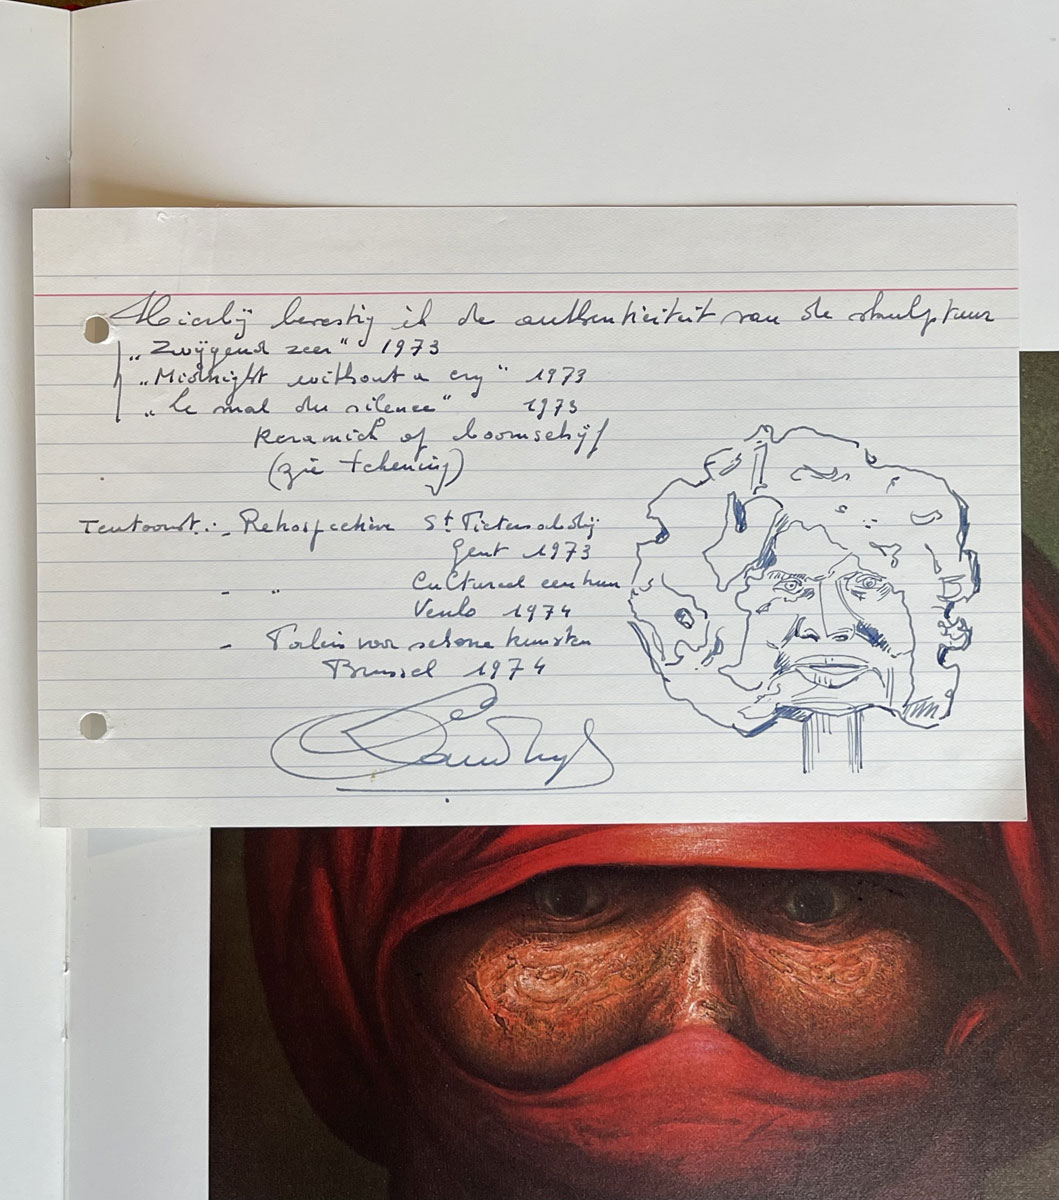 Hierbij bevestig ik de authenticiteit van de skulptuur
„Zwijgend zeer" 1973
„Midnight without a cry" 1973
„Le mal du silence" 1973
keramiek of boomschijf
(zie tekening)
Tentoonst.: - Retrospective St Pietersabdij
Gent 1973
- " Cultureel centrum
Venlo 1974
- Paleis voor schone kunsten
Brussel 1974